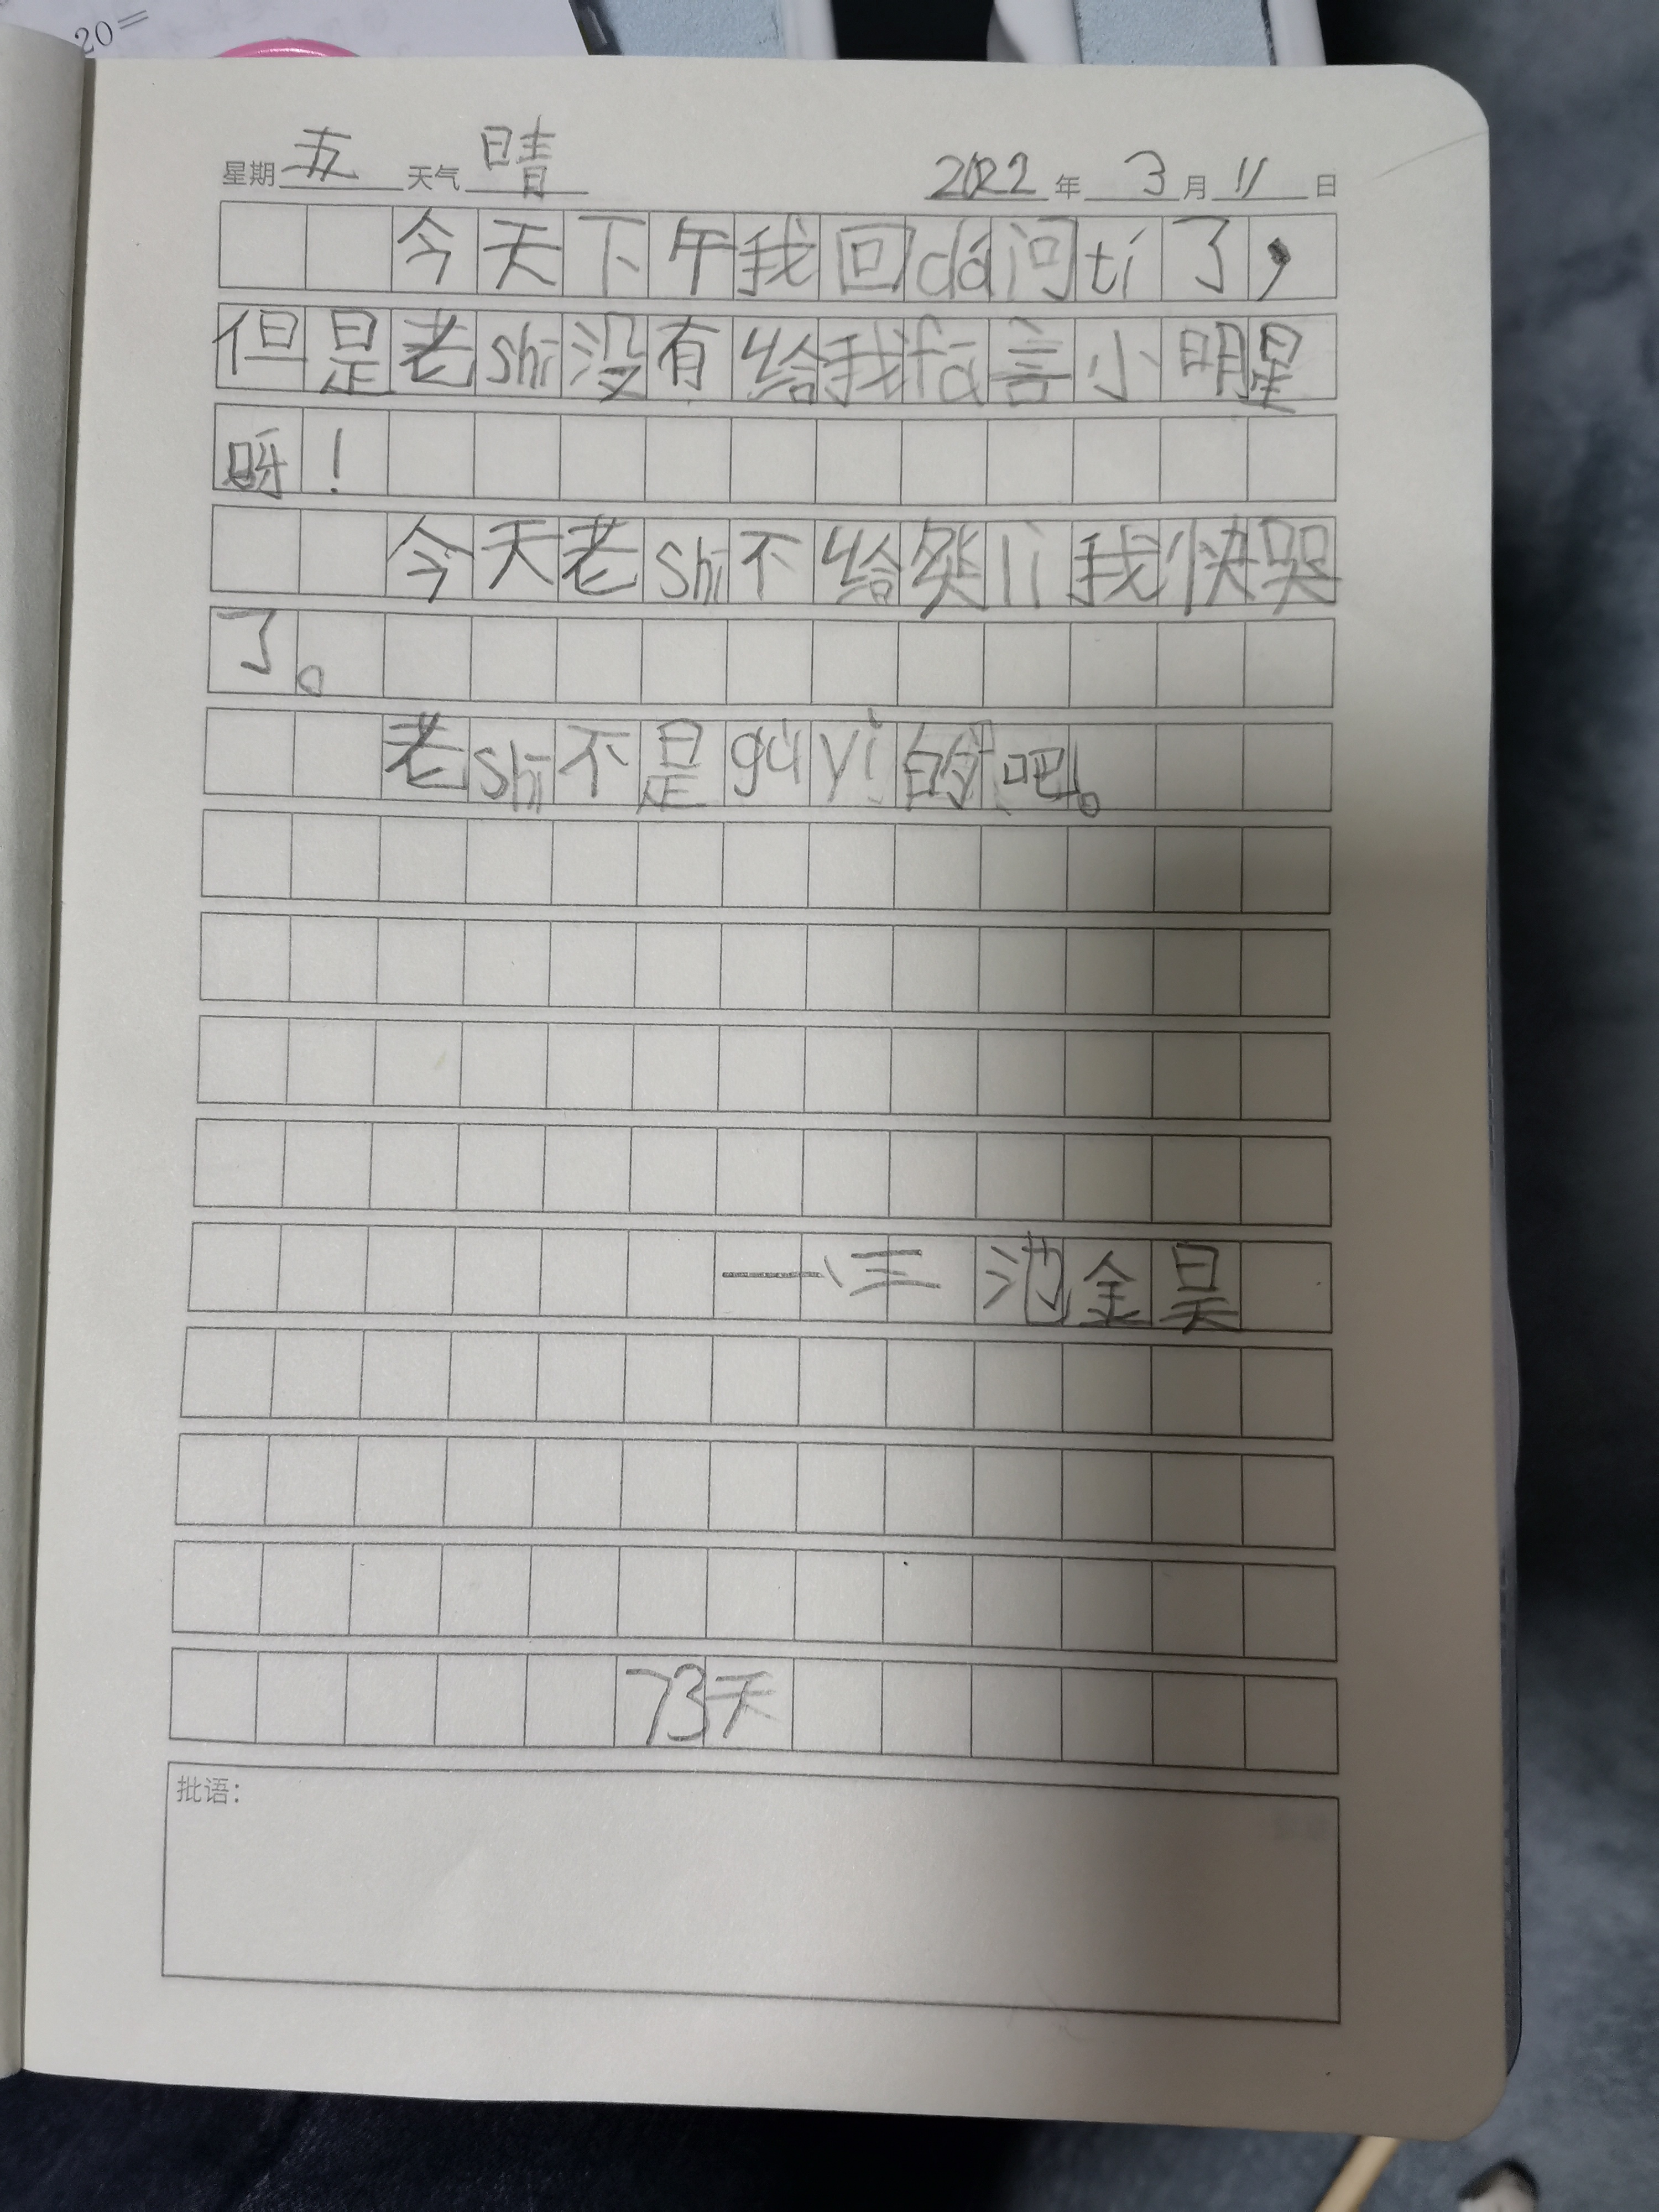 20=
星期 五 天气 晴 2022 年 3 月 11 日
今天下午我回dá问tí了，
但是老shī没有给我fā言小明星
呀！
今天老shī不给奖lì我快哭
了。
老shī不是gùyì的吧。
一、三 池金昊
73天
批语：